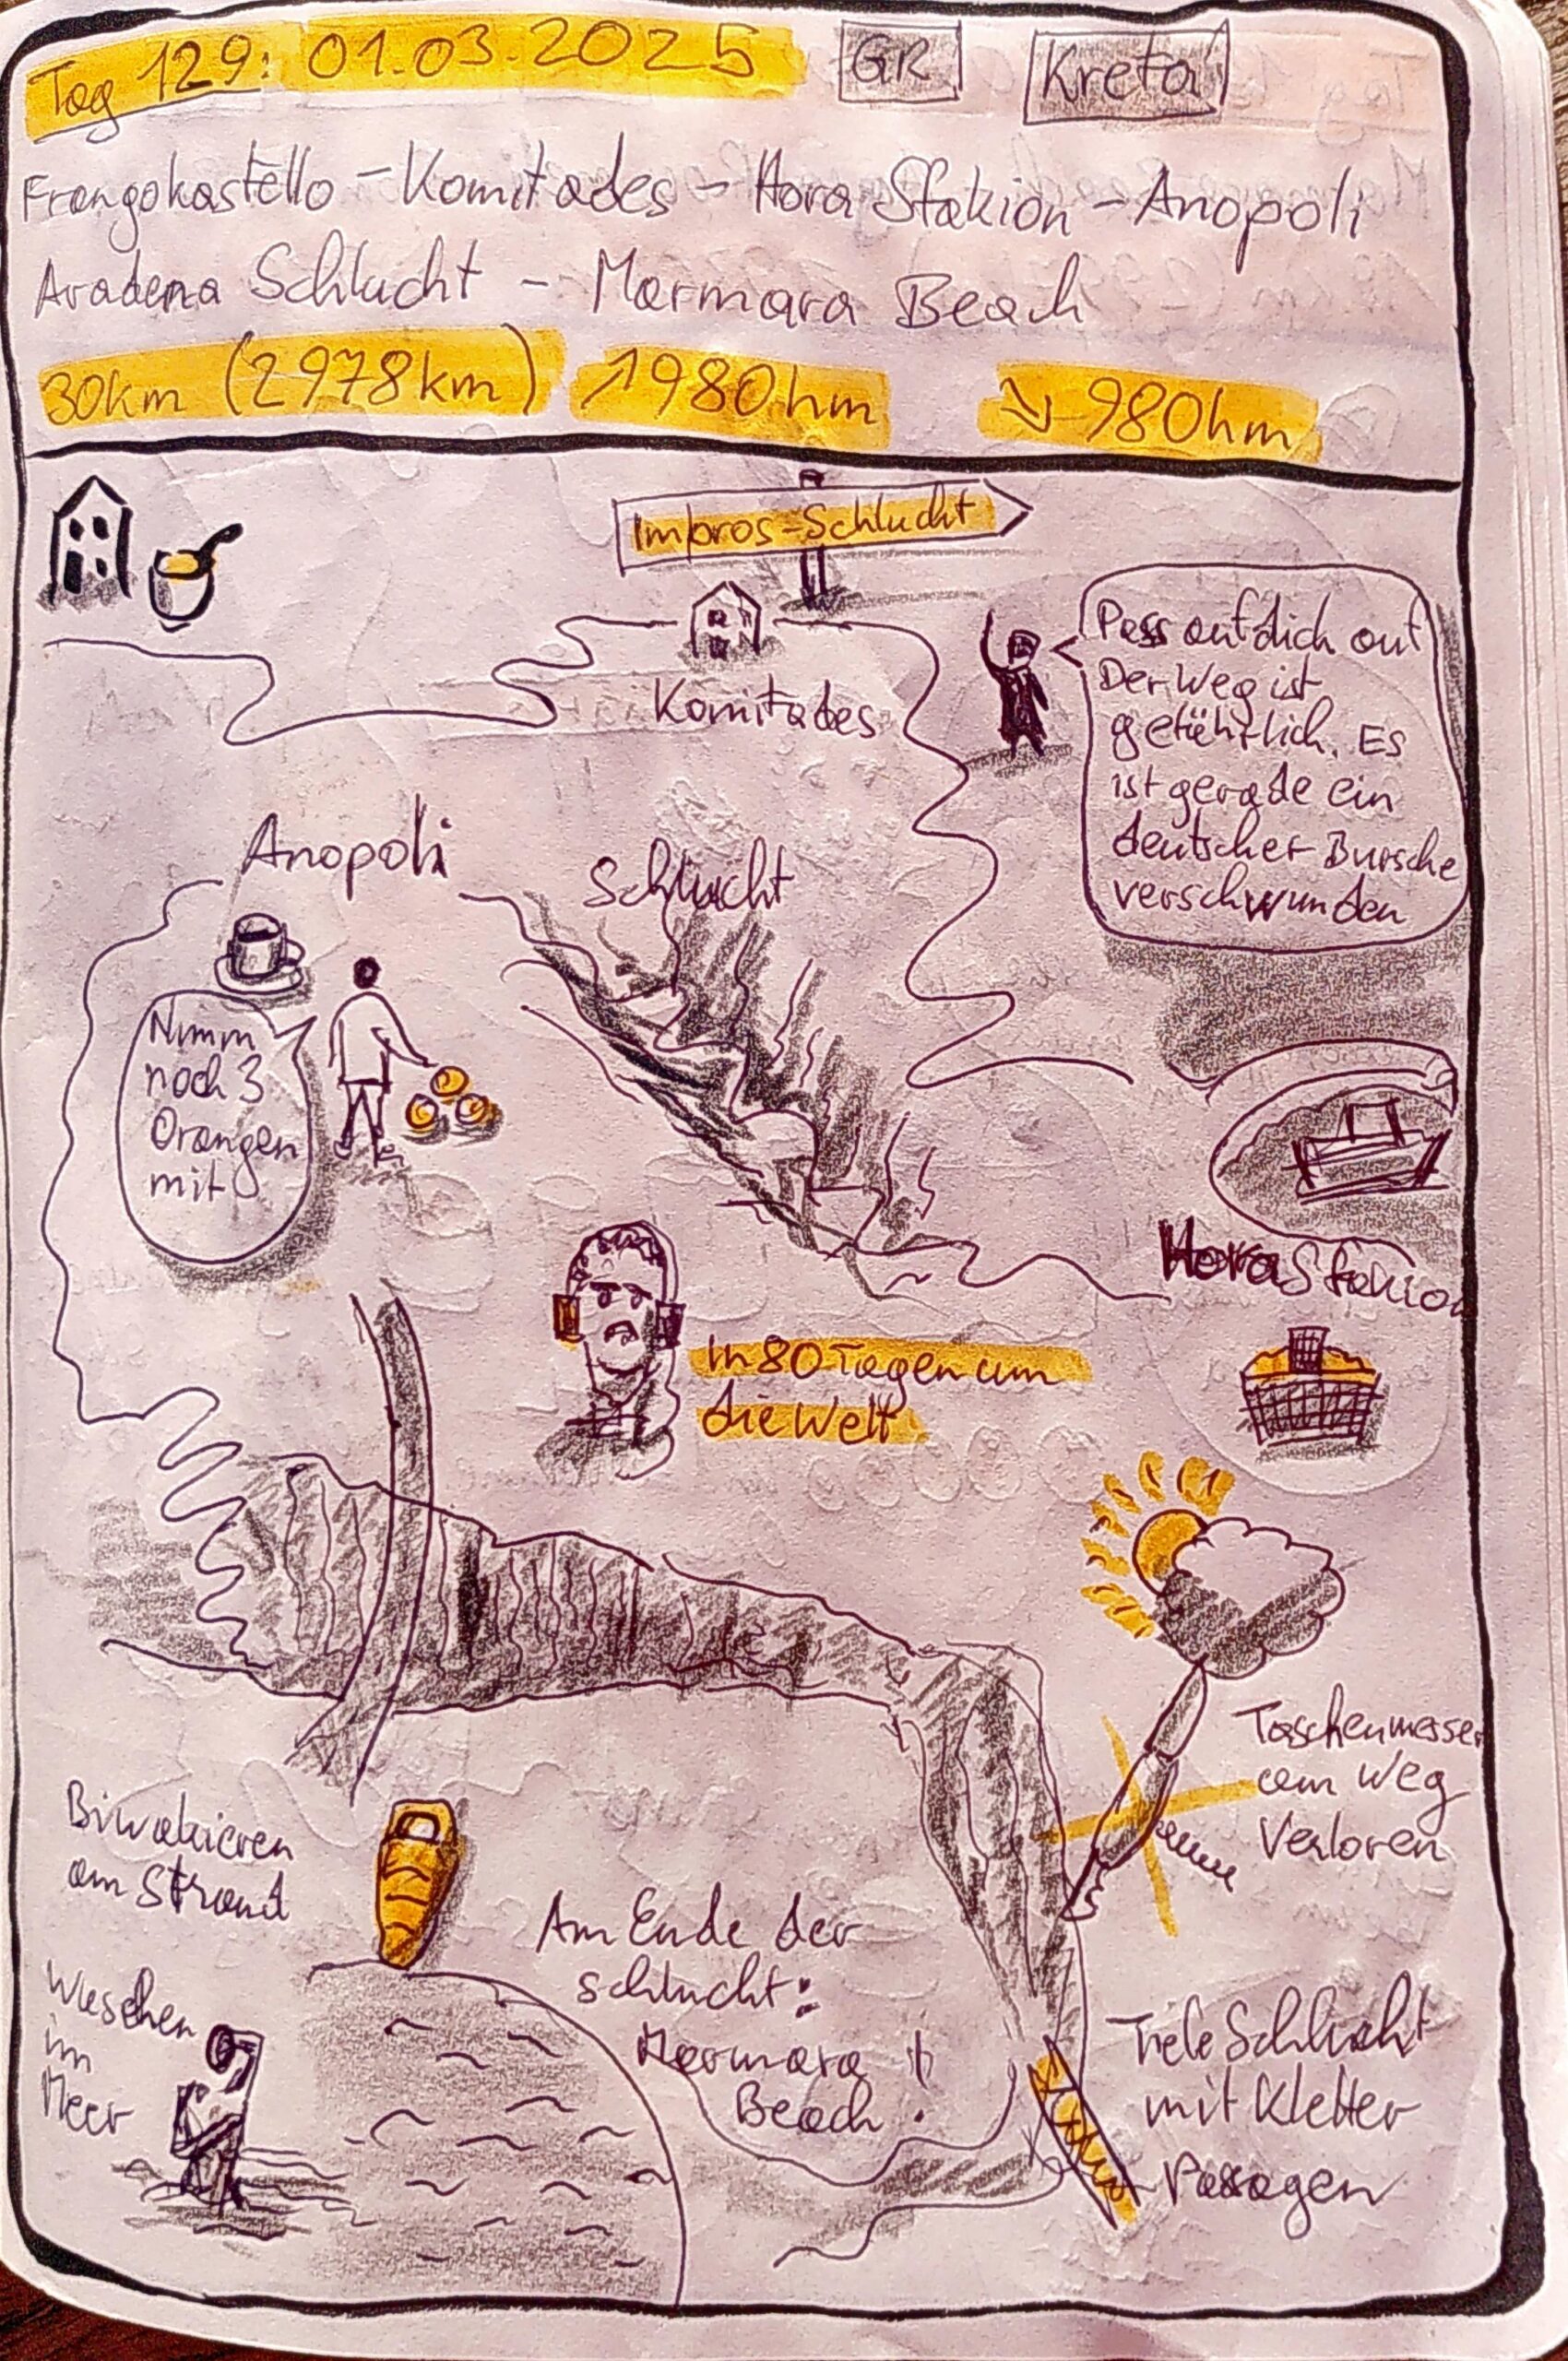 Tag 129: 01.03.2025 GR Kreta
Frangokastello - Komitades - Hora Sfakion - Anopoli
Aradena Schlucht - Marmara Beach
30km (2978km) ↗980hm ↘980hm
Imbros-Schlucht
Komitades
Pass auf dich auf
Der Weg ist
gefährlich. Es
ist gerade ein
deutscher Bursche
verschwunden
Anopoli
Schlucht
Nimm
noch 3
Orangen
mit
Hora Sfakion
In 80 Tagen um
die Welt
Taschenmesser
am Weg
Verloren
Biwakieren
am Strand
Am Ende der
Schlucht:
Marmara
Beach!
Waschen
im
Meer
Tiefe Schlucht
mit Kletter
Passagen